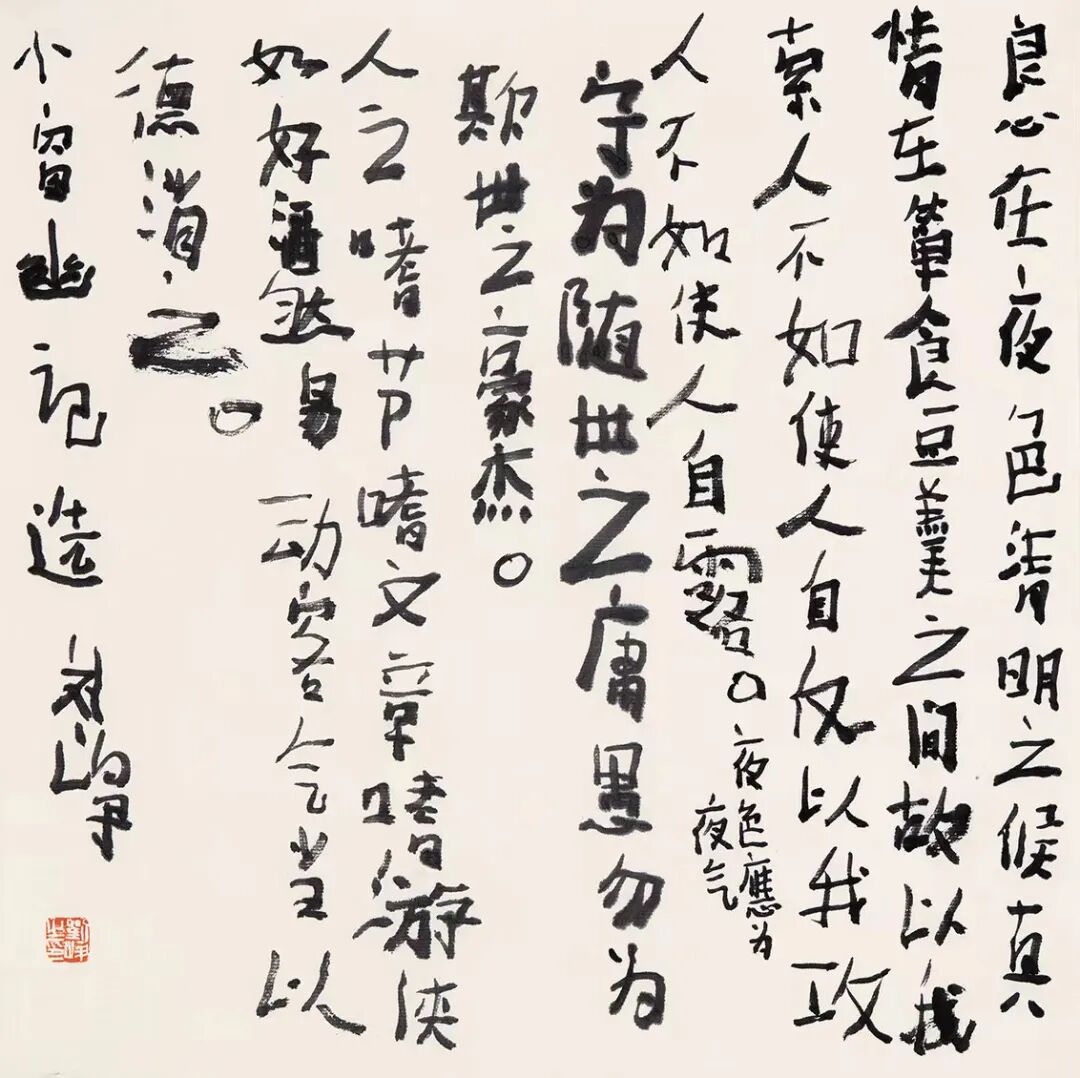 良心在夜色清明之候真
情在箪食豆羹之间故以我
索人不如使人自反以我攻
人不如使人自露。
夜色應为
夜气
宁为随世之庸愚勿为
欺世之豪杰。
人之嗜节嗜文章嗜游侠
如好酒然易动客气当以
德消之。
小窗幽记选 刘峥